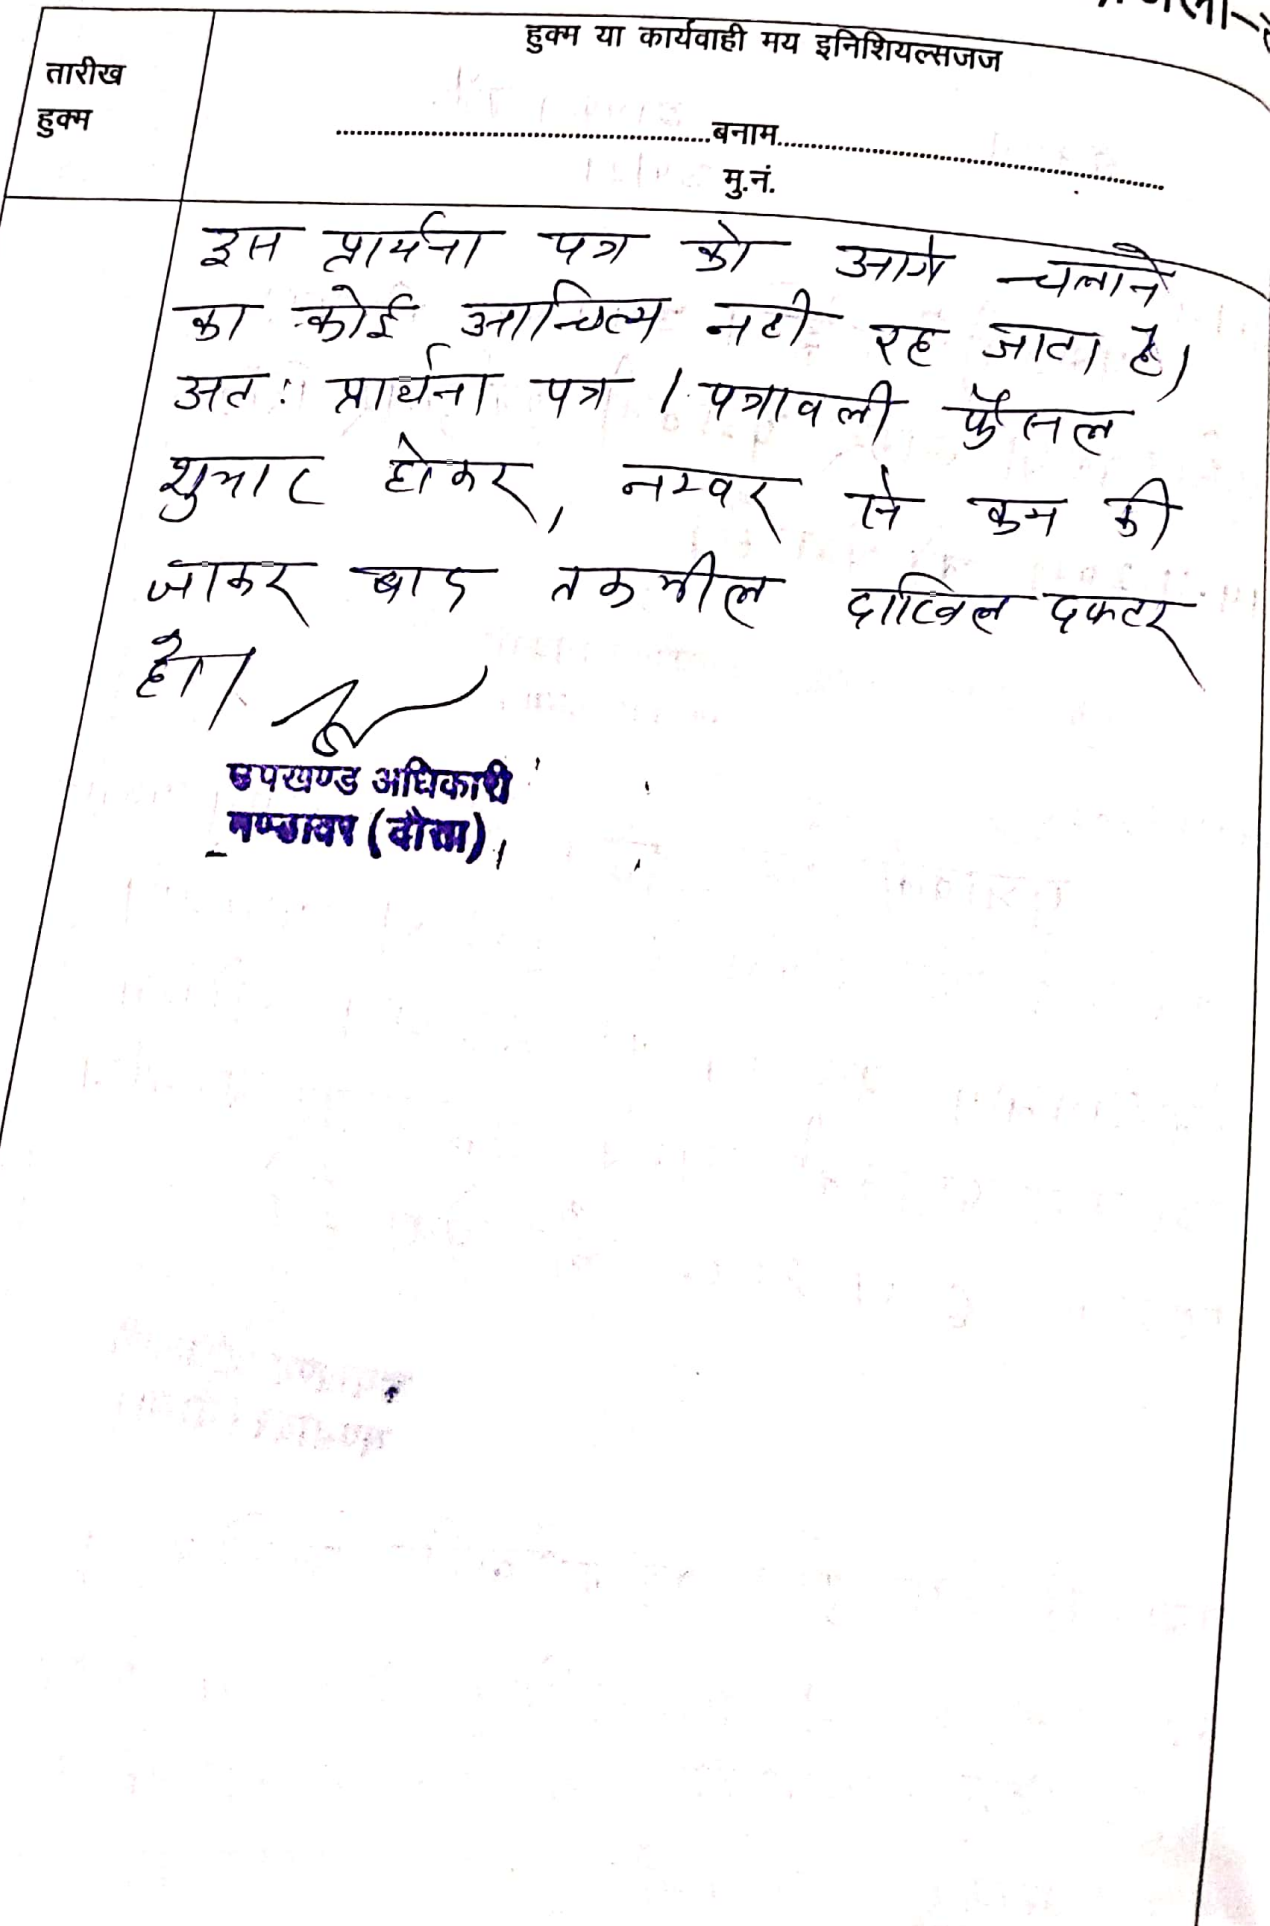 हुक्म या कार्यवाही मय इनिशियल्सजज
तारीख
हुक्म
....................................................बनाम....................................................
मु.नं.
इस प्रार्थना पत्र को आगे चलाने
का कोई औचित्य नही रह जाता है।
अत: प्रार्थना पत्र / पत्रावली फैसल
शुमार होकर, नम्बर से कम की
जाकर बाद तकमील दाखिल दफ्तर
हो।
उपखण्ड अधिकारी
मण्डावर (दौसा)